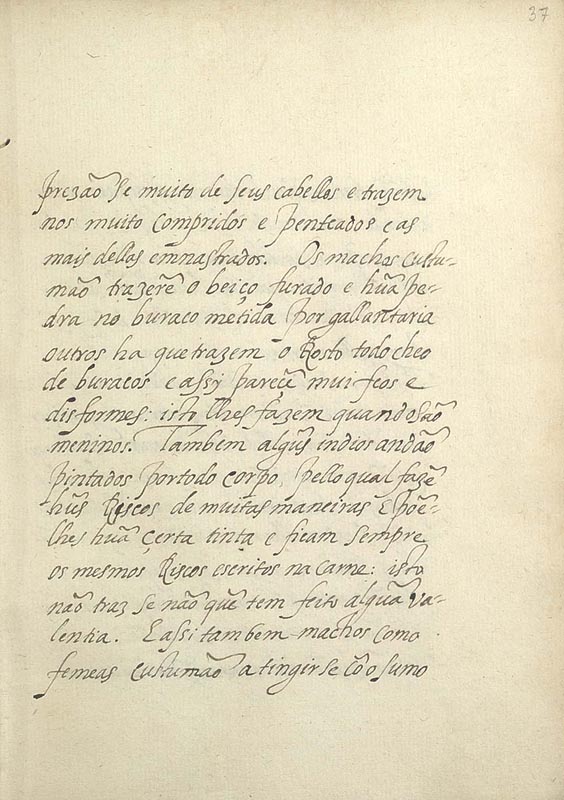 37
prezão se muito de seus cabellos e trazem
nos muito compridos e penteados e as
mais dellas emnastrados. Os machos custu-
mão trazerẽ o beiço furado e hũa pe-
dra no buraco metida por gallantaria
outros ha que trazem o Rosto todo cheo
de buracos e assy pareçẽ mui feos e
disformes: isto lhes fazem quando são
meninos. Tambem algũs indios andão
pintados por todo corpo, pello qual fazẽ
hũs Riscos de muitas maneiras E põe-
lhes hũa çerta tinta e ficam sempre
os mesmos Riscos escritos na carne: isto
não traz se não quẽ tem feito algũa va-
lentia. E assi tambem machos como
femeas custumão a tingirse cõ o sumo